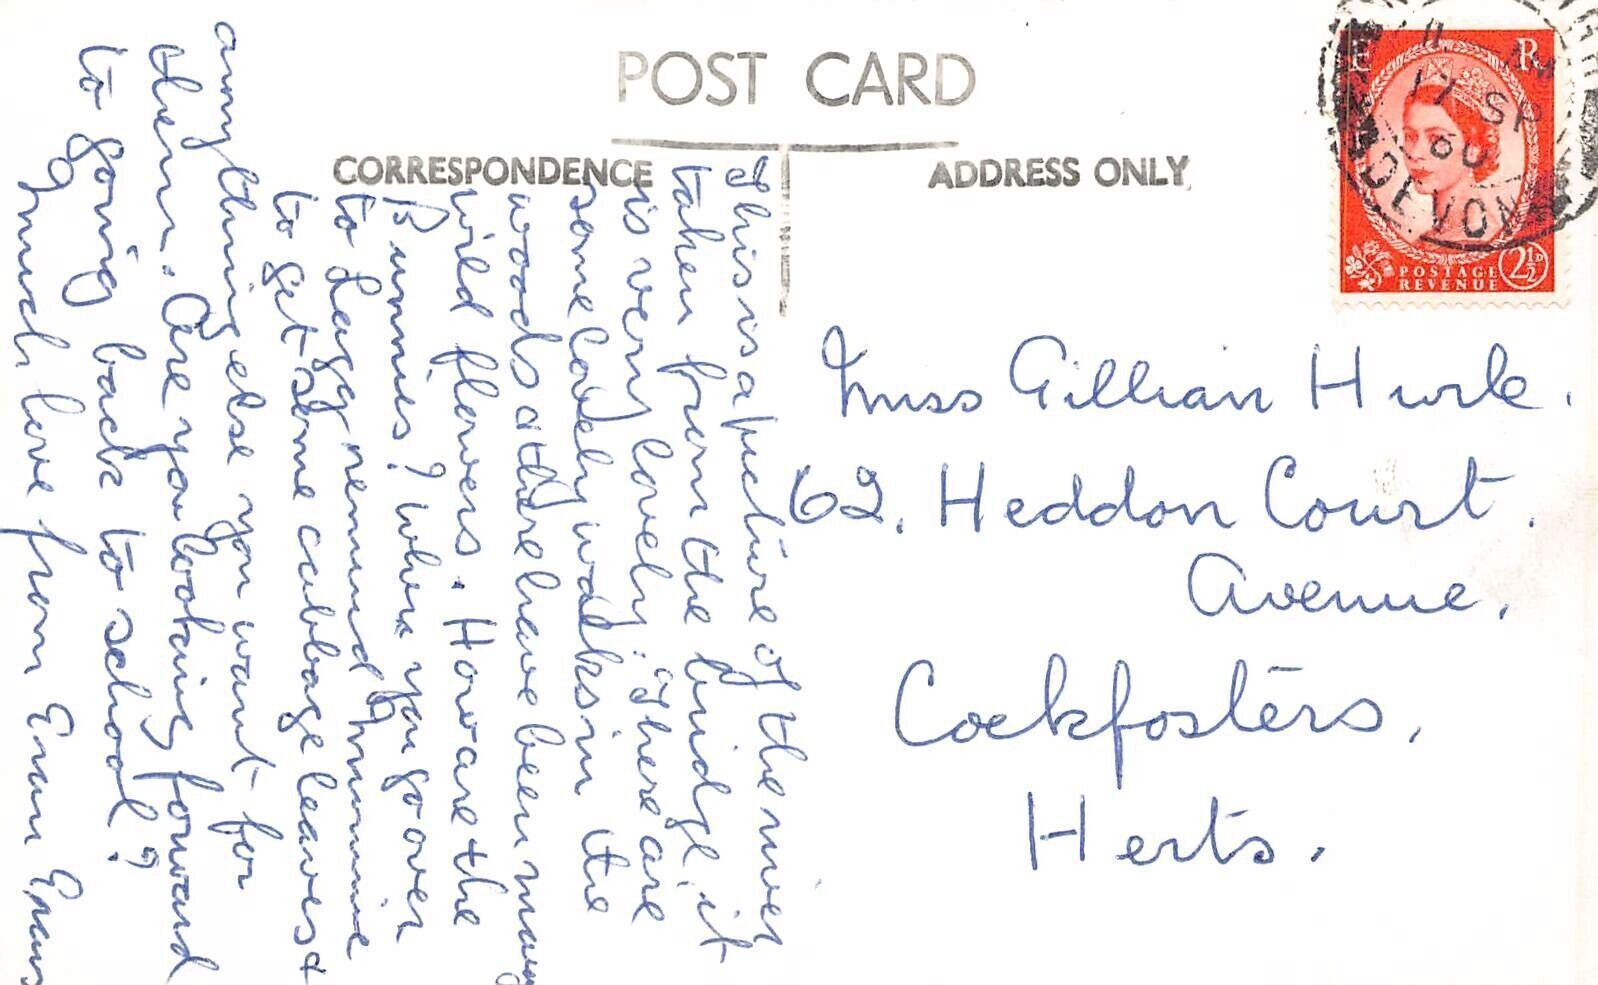 POST CARD
CORRESPONDENCE
ADDRESS ONLY
This is a picture of the river
taken from the bridge, it
is very lovely. There are
some lovely walks in the
woods & there have been many
wild flowers. How are the
Bunnies? When you go over
to Lagg remind Mummie
to get some cabbage leaves &
anything else you want for
them. Are you looking forward
to going back to school?
Much love from
Miss Gillian Hurle.
62, Heddon Court
Avenue,
Cockfosters,
Herts.
E R
POSTAGE
REVENUE
2½D
11
17 SP
60
DEVON